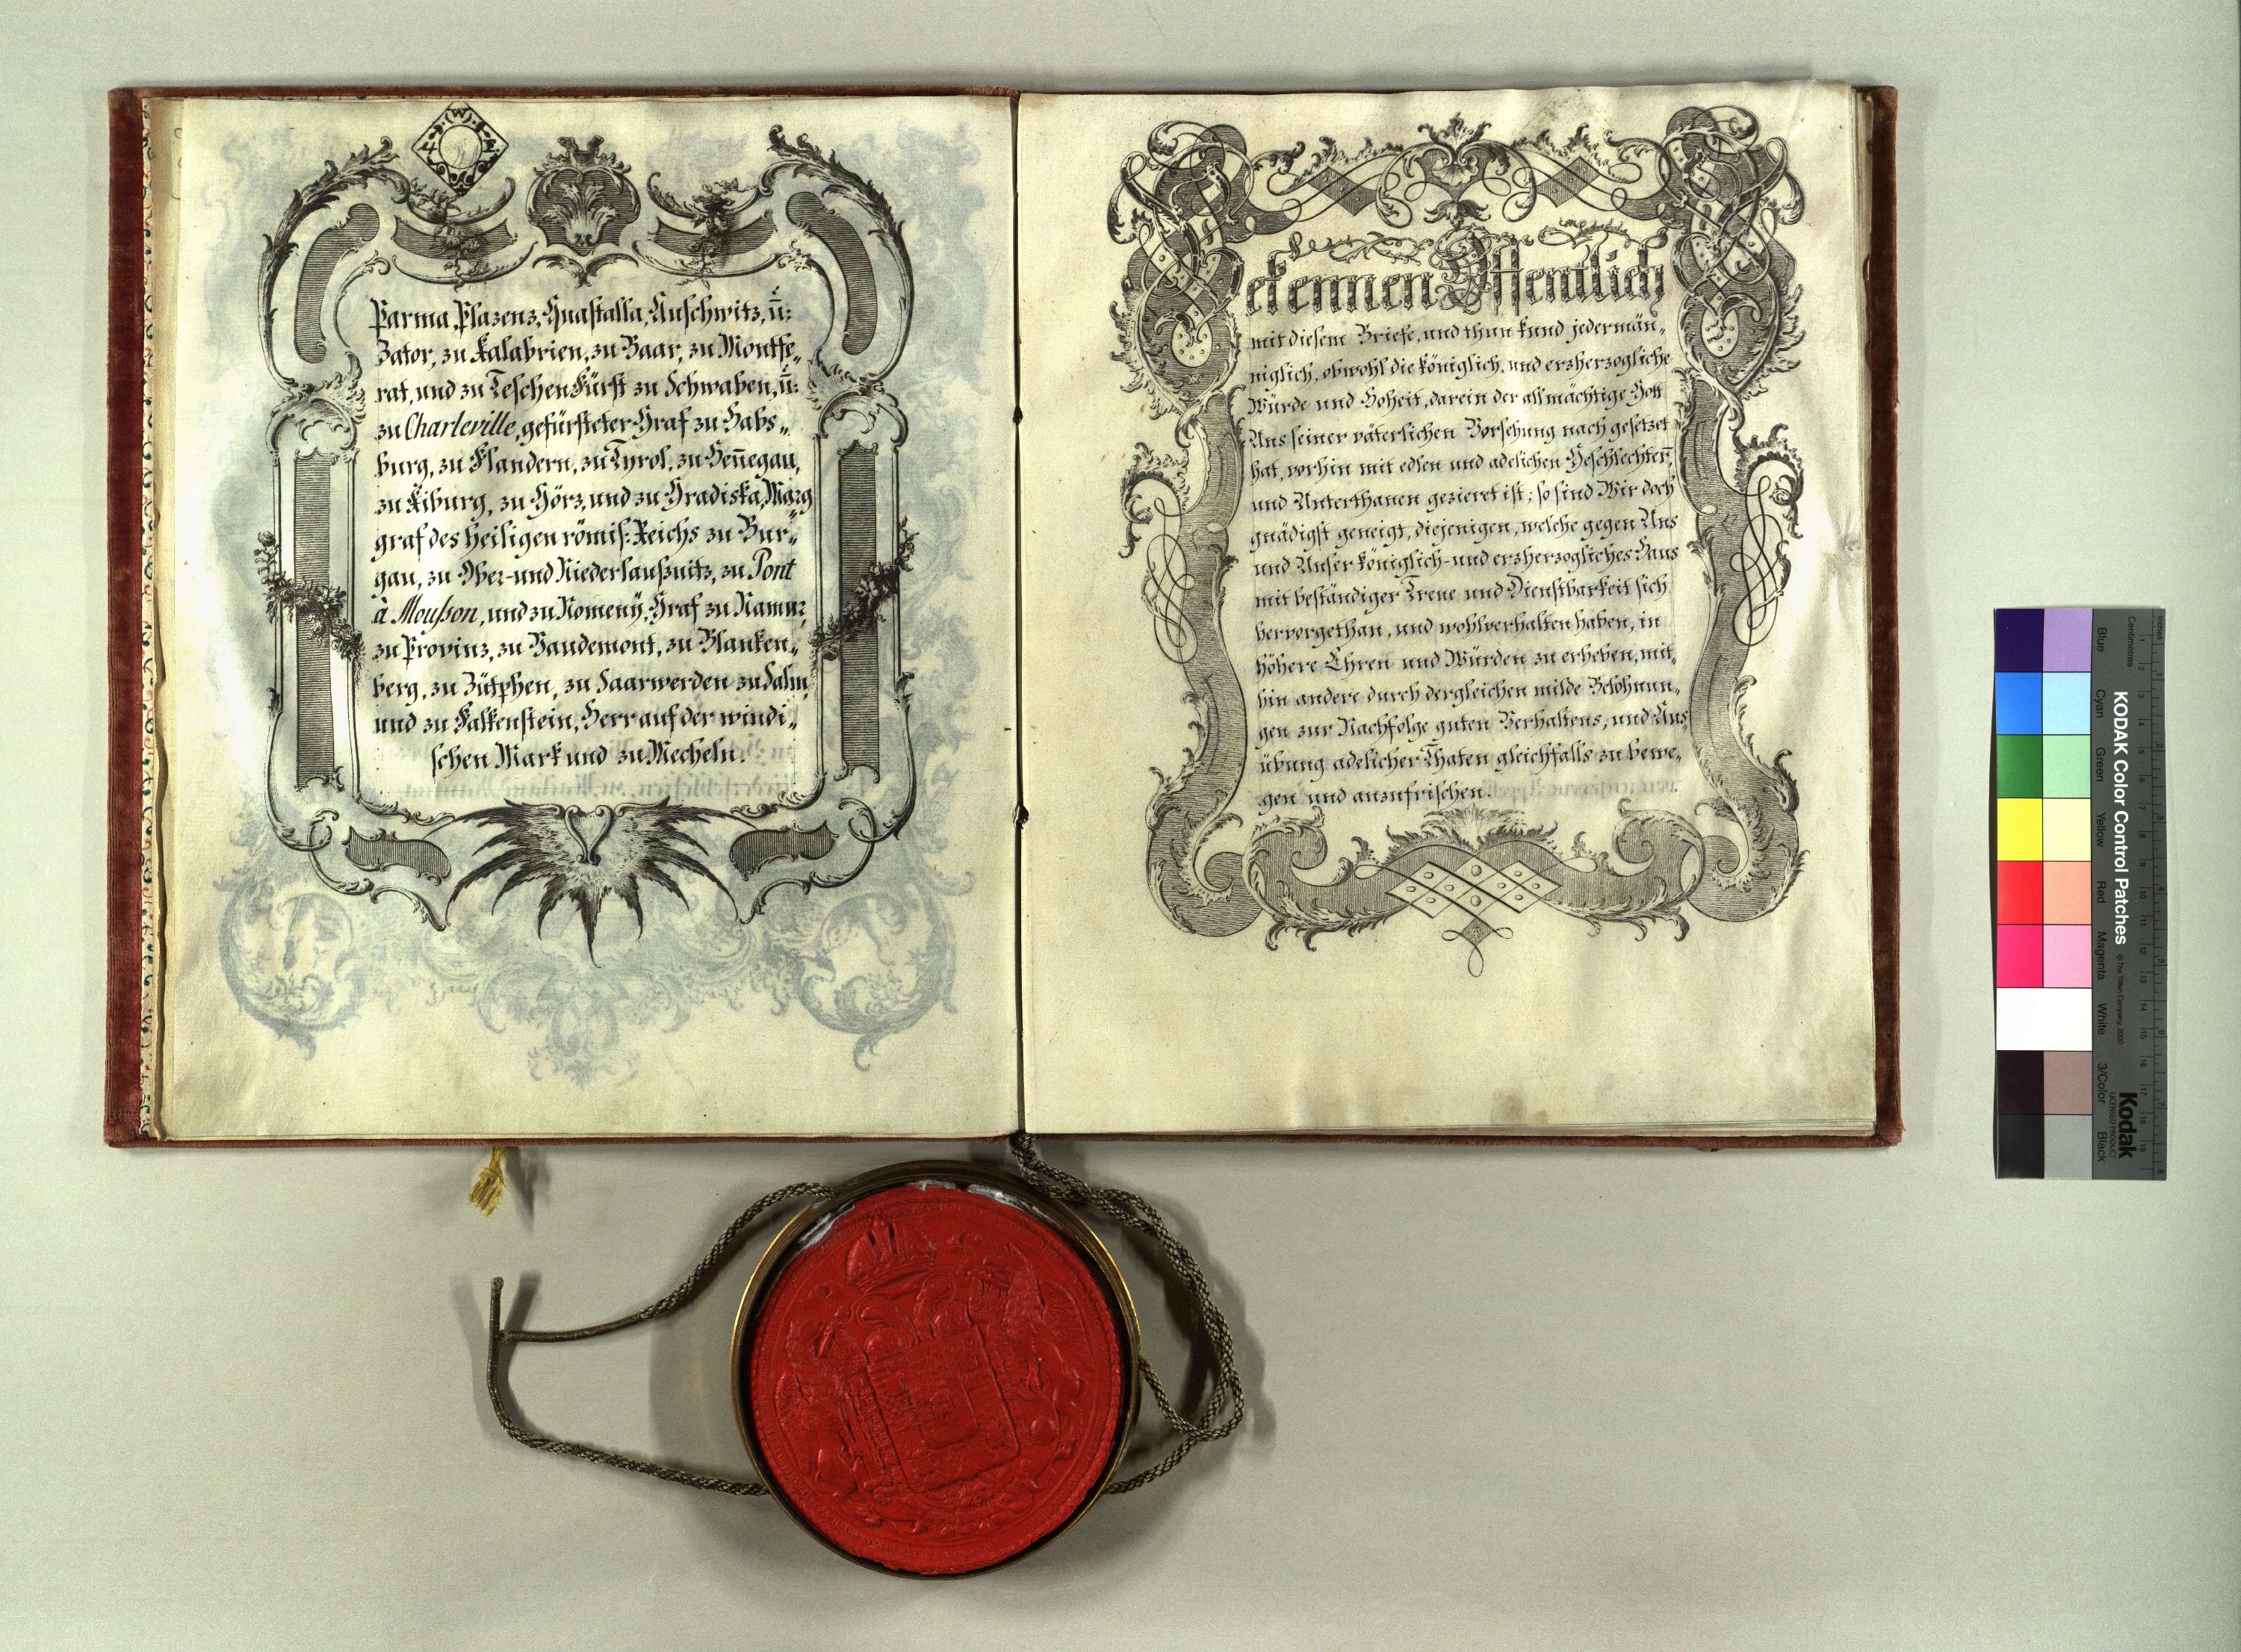 Parma, Plazenz, Guastalla, Auschwitz, ū:
Zator, zu Kalabrien, zu Baar, zu Montfe„
rat, und zu Teschen Fürst zu Schwaben, ū:
zu Charleville, gefürsteter Graf zu Habs„
burg, zu Flandern, zu Tyrol, zu Heñegau,
zu Kiburg, zu Görz, und zu Gradiska, Marg
graf des heiligen römis: Reichs zu Bur„
gau, zu Ober- und Niederlaußnitz, zu Pont
à Moußon, und zu Nomeny, Graf zu Namur,
zu Provinz, zu Vaudemont, zu Blanken„
berg, zu Zütphen, zu Saarwerden zu Salm,
und zu Falkenstein, Herr auf der windi„
schen Mark und zu Mecheln.
Bekennen Öffentlich
mit diesem Briefe, und thun kund jedermän„
niglich, obwohl die königlich, und erzherzogliche
Würde und Hoheit, darein der allmächtige Gott
Uns seiner väterlichen Vorsehung nach gesetzet
hat, vorhin mit edlen und adelichen Geschlechter̄,
und Unterthanen gezieret ist; so sind Wir doch
gnädigst geneigt, diejenigen, welche gegen Uns
und Unser königlich- und erzherzogliches Haus
mit beständiger Treue und Dienstbarkeit sich
hervorgethan, und wohlverhalten haben, in
höhere Ehren und Würden zu erheben, mit„
hin andere durch dergleichen milde Belohnun„
gen zur Nachfolge guten Verhaltens, und Aus„
übung adelicher Thaten gleichfalls zu bewe„
gen und anzufrischen.
KODAK Color Control Patches
© The Tiffen Company, 2000
Kodak
LICENSED PRODUCT
Blue Cyan Green Yellow Red Magenta White 3/Color Black
Centimetres
Inches